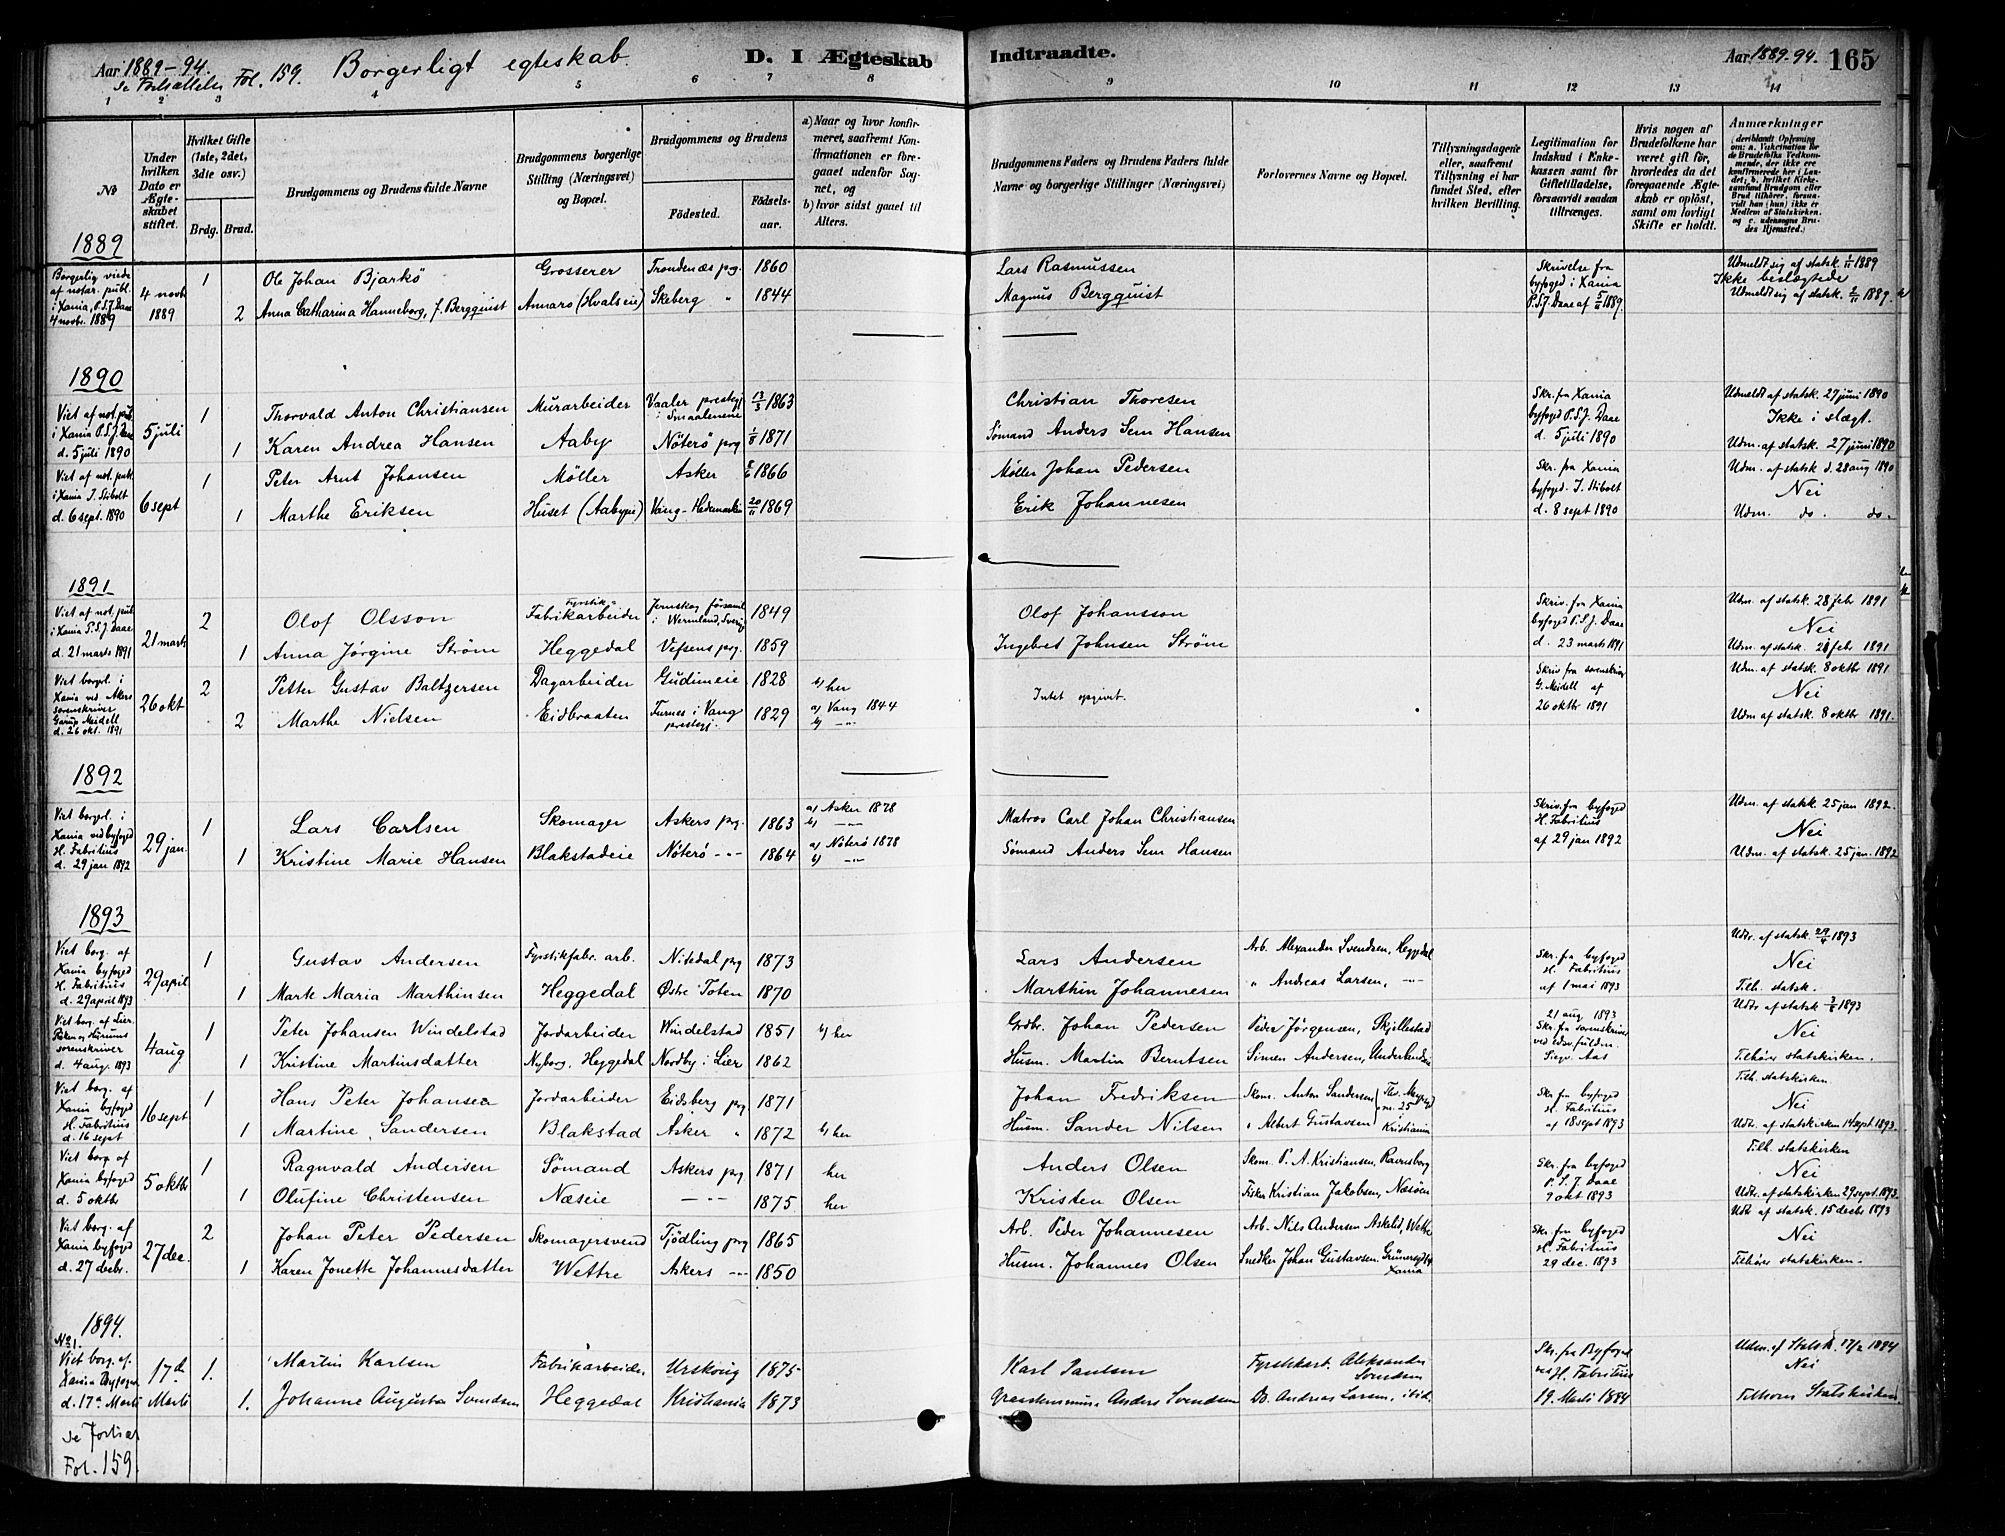 Aar 1889-94.
Se Fortsættelse Fol. 159.
Borgerligt egteskab.
D. I Ægteskab
Indtraadte.
Aar 1889-94.
165
1 2 3 4 5 6 7 8 9 10 11 12 13 14
No
Under hvilken Dato er Ægteskabet stiftet.
Hvilket Gifte (1ste, 2det, 3die osv.)
Brdg. Brud.
Brudgommens og Brudens fulde Navne
Brudgommens borgerlige Stilling (Næringsvei) og Bopæl.
Brudgommens og Brudens
Fødested.
Fødselsaar.
a) Naar og hvor konfirmeret, saafremt Konfirmationen er foregaaet udenfor Sognet, og
b) hvor sidst gaaet til Alters.
Brudgommens Faders og Brudens Faders fulde Navne og borgerlige Stillinger (Næringsvei)
Forlovernes Navne og Bopæl.
Tillysningsdagene eller, saafremt Tillysning ei har fundet Sted, efter hvilken Bevilling.
Legitimation for Indskud i Enkekassen samt for Giftetilladelse, forsaavidt saadan tiltrænges.
Hvis nogen af Brudefolkene har været gift før, hvorledes da det foregaaende Ægteskab er opløst, samt om lovligt Skifte er holdt.
Anmærkninger (deriblandt Oplysning om: a. Vakcination for de Brudefolks Vedkommende, der ikke ere konfirmerede her i Landet; b. hvilket Kirkesamfund Brudgom eller Brud tilhører, forsaavidt han (hun) ikke er Medlem af Statskirken, og c. udensogns Brudes Hjemsted.)
1889
Borgerlig viede af notar. publ. i Xania, P.S.J. Daae 4 novbr. 1889
4 novb 1889
1 Ole Johan Bjarkö Grosserer Trondenæs pg. 1860 Lars Rasmussen
2 Anna Catharina Hanneborg, f. Bergquist Annaro (Hvalseie) Skeberg " 1844 Magnus Bergquist
Skrivelse fra byfoged i Xania P.S.J. Daae af 5/11 1889.
Udmeldt sig af statsk. 1/11 1889
Ikke beslægtede
Udmeldt sig af statsk. 2/11 1889.
1890
Viet af not. pub. i Xania P.S.J. Daae d. 5 juli 1890
5 juli
1 Thorvald Anton Christiansen Murarbeider Vaaler prestegj. i Smaalenene 13/3 1863 Christian Thoresen
1 Karen Andrea Hansen Aaby Nöterö prg 1/8 1871 Sømand Anders Sem Hansen
Skr. fra Xania byfoged P.S.J. Daae d. 5 juli 1890
Udmeldt af statsk. 27 juni 1890
Ikke i slægt.
Udm. af statsk. 27 juni 1890
Viet af not. pub. i Xania J. Stibolt d. 6 sept. 1890
6 sept
1 Peter Arnt Johansen Möller Asker 1866 Møller Johan Pedersen
1 Marthe Eriksen Huset (Aabyeie) Vang-Hedemarken 20/11 1869 Erik Johannesen
Skr. fra Xania byfoged J. Stibolt d. 8 sept 1890
Udm. af statsk d. 28 aug 1890
Nei
Udm. do. do.
1891
Viet af not. pub. i Xania P.S.J. Daae d. 21 marts 1891
21 marts
2 Olof Olsson Fyrstik-Fabrikarbeider Jernskog församl. i Wermland, Sverig 1849 Olof Johansson
1 Anna Jørgine Strøm Heggedal Vefsens prg. 1859 Ingebret Johnsen Strøm
Skriv. fra Xania byfoged P.S.J. Daae d. 23 marts 1891
Udm. af statsk. 28 febr 1891
Nei
Udm. af statsk. 28 febr 1891
Viet borgerl. i Xania ved Akers sorenskriver Garup Meidell d. 26 okt. 1891
26 okt
2 Petter Gustav Baltzersen Dagarbeider Gudimeie 1828 b) her
2 Marthe Nielsen Eidbraaten Furnes i Vang prestegj. 1829 a) Vang 1844 b) -"-
Intet opgivet.
Skriv fra sorenskriv G. Meidell af 26 oktbr 1891
Udm. af statsk. 8 oktbr 1891
Nei
Udm af statsk. 8 oktbr 1891.
1892
Viet borgerl. i Xania ved byfoged H. Fabritius d. 29 jan 1892
29 jan.
1 Lars Carlsen Skomager Askers prg. 1863 a) Asker 1878 b) -"- Matros Carl Johan Christiansen
1 Kristine Marie Hansen Blakstadeie Nöterö -"- 1864 a) Nöterö 1878 b) -"- Sømand Anders Sem Hansen
Skriv. fra byfoged H. Fabritius af 29 jan 1892
Udm. af statsk. 25 jan 1892.
Nei
Udm. af statsk. 25 jan. 1892
1893
Viet borg. af Xania byfoged H. Fabritius d. 29 april 1893
29 april
1 Gustav Andersen Fyrstikfabr. arb. Nitedal prg 1873 Lars Andersen Arb. Alexander Svendsen, Heggedal
1 Marte Maria Marthinsen Heggedal Østre Toten 1870 Marthin Johannesen " Andreas Larsen, -"-
Skr. fra byfoged H. Fabritius af 1 mai 1893
Udtr. af statsk. 29/4 1893
Nei
Tilh. statsk.
Viet borg. af Lier, Röken og Hurums sorenskriver d. 4 aug. 1893
4 aug
1 Peter Johansen Windelstad Jordarbeider Windelstad 1851 b) her Grdbr. Johan Pedersen Peder Jörgensen, Skjellestad
1 Kristine Martinsdatter Nyborg, Heggedal Nordby i Lier 1862 Husm. Martin Berntsen Simen Andersen, Underlandn
21 aug 1893 Skr. fra sorenskriver ved edsv. fuldm. Sigv. Aas
Udtr af statsk 1893
Nei
Tilhörer statskirken.
Viet borg. af Xania byfoged H. Fabritius d. 16 sept
16 sept
1 Hans Peter Johansen Jordarbeider Eidsberg prg 1871 Johan Fredriksen Skom. Anton Sandersen
1 Martine Sandersen Blakstad Asker " 1872 b) her Husm. Sander Nilsen " Albert Gustavsen
Th. Meyersgd no. 25 Kristiania
Skr. fra byfoged H. Fabritius af 18 sept 1893
Tilh. statskirken
Nei
Udtr. af statskirken 14 sept. 1893.
Viet borg. af Xania byfoged d. 5 oktbr
5 oktbr
1 Ragnvald Andersen Sömand Askers prg 1871 her Anders Olsen Skom. P. A. Kristiansen, Ravnsborg
1 Olufine Christensen Næseie -"- 1875 her Kristen Olsen Fisker Kristian Jakobsen, Næsöen
Skr. fra byfoged P. S. J. Daae 9 okt 1893
Tilh. statskirken
Nei
Udtr. af statskirken 29 sept. 1893.
Viet borg. af Xania byfoged d. 27 decbr.
27 dec.
2 Johan Peter Pedersen Skomagersvend Tjödling prg 1865 Arb. Peder Johannesen Arb. Nils Andersen Askelid, Wettre
1 Karen Jonette Johannesdatter Wettre Askers -"- 1850 Husm. Johannes Olsen Snedker Johan Gustavsen, Grünersgd 14 Xania
Skr. fra byfoged H. Fabritius 29 dec. 1893
Udtr af statsk. 15 decbr 1893
Nei
Tilhörer statskirken.
1894.
No 1.
Viet borg. af Xania Byfoged d. 17de Marts
17de Marts
1. Martin Karlsen Fabrikarbeider Urskoug 1875 Karl Paulsen Fyrstikarb. Aleksander Svendsen
1. Johanne Augusta Svendsen Heggedal Kristiania 1873 Anders Svendsen Do. Andreas Larsen, ibid.
Skr. fra Byfoged ved H. Fabritius 19. Marts 1884
Udm. af Statsk. 17/2 1894
Nei
Tilhører Statskirken
Se Forts af Fol. 159